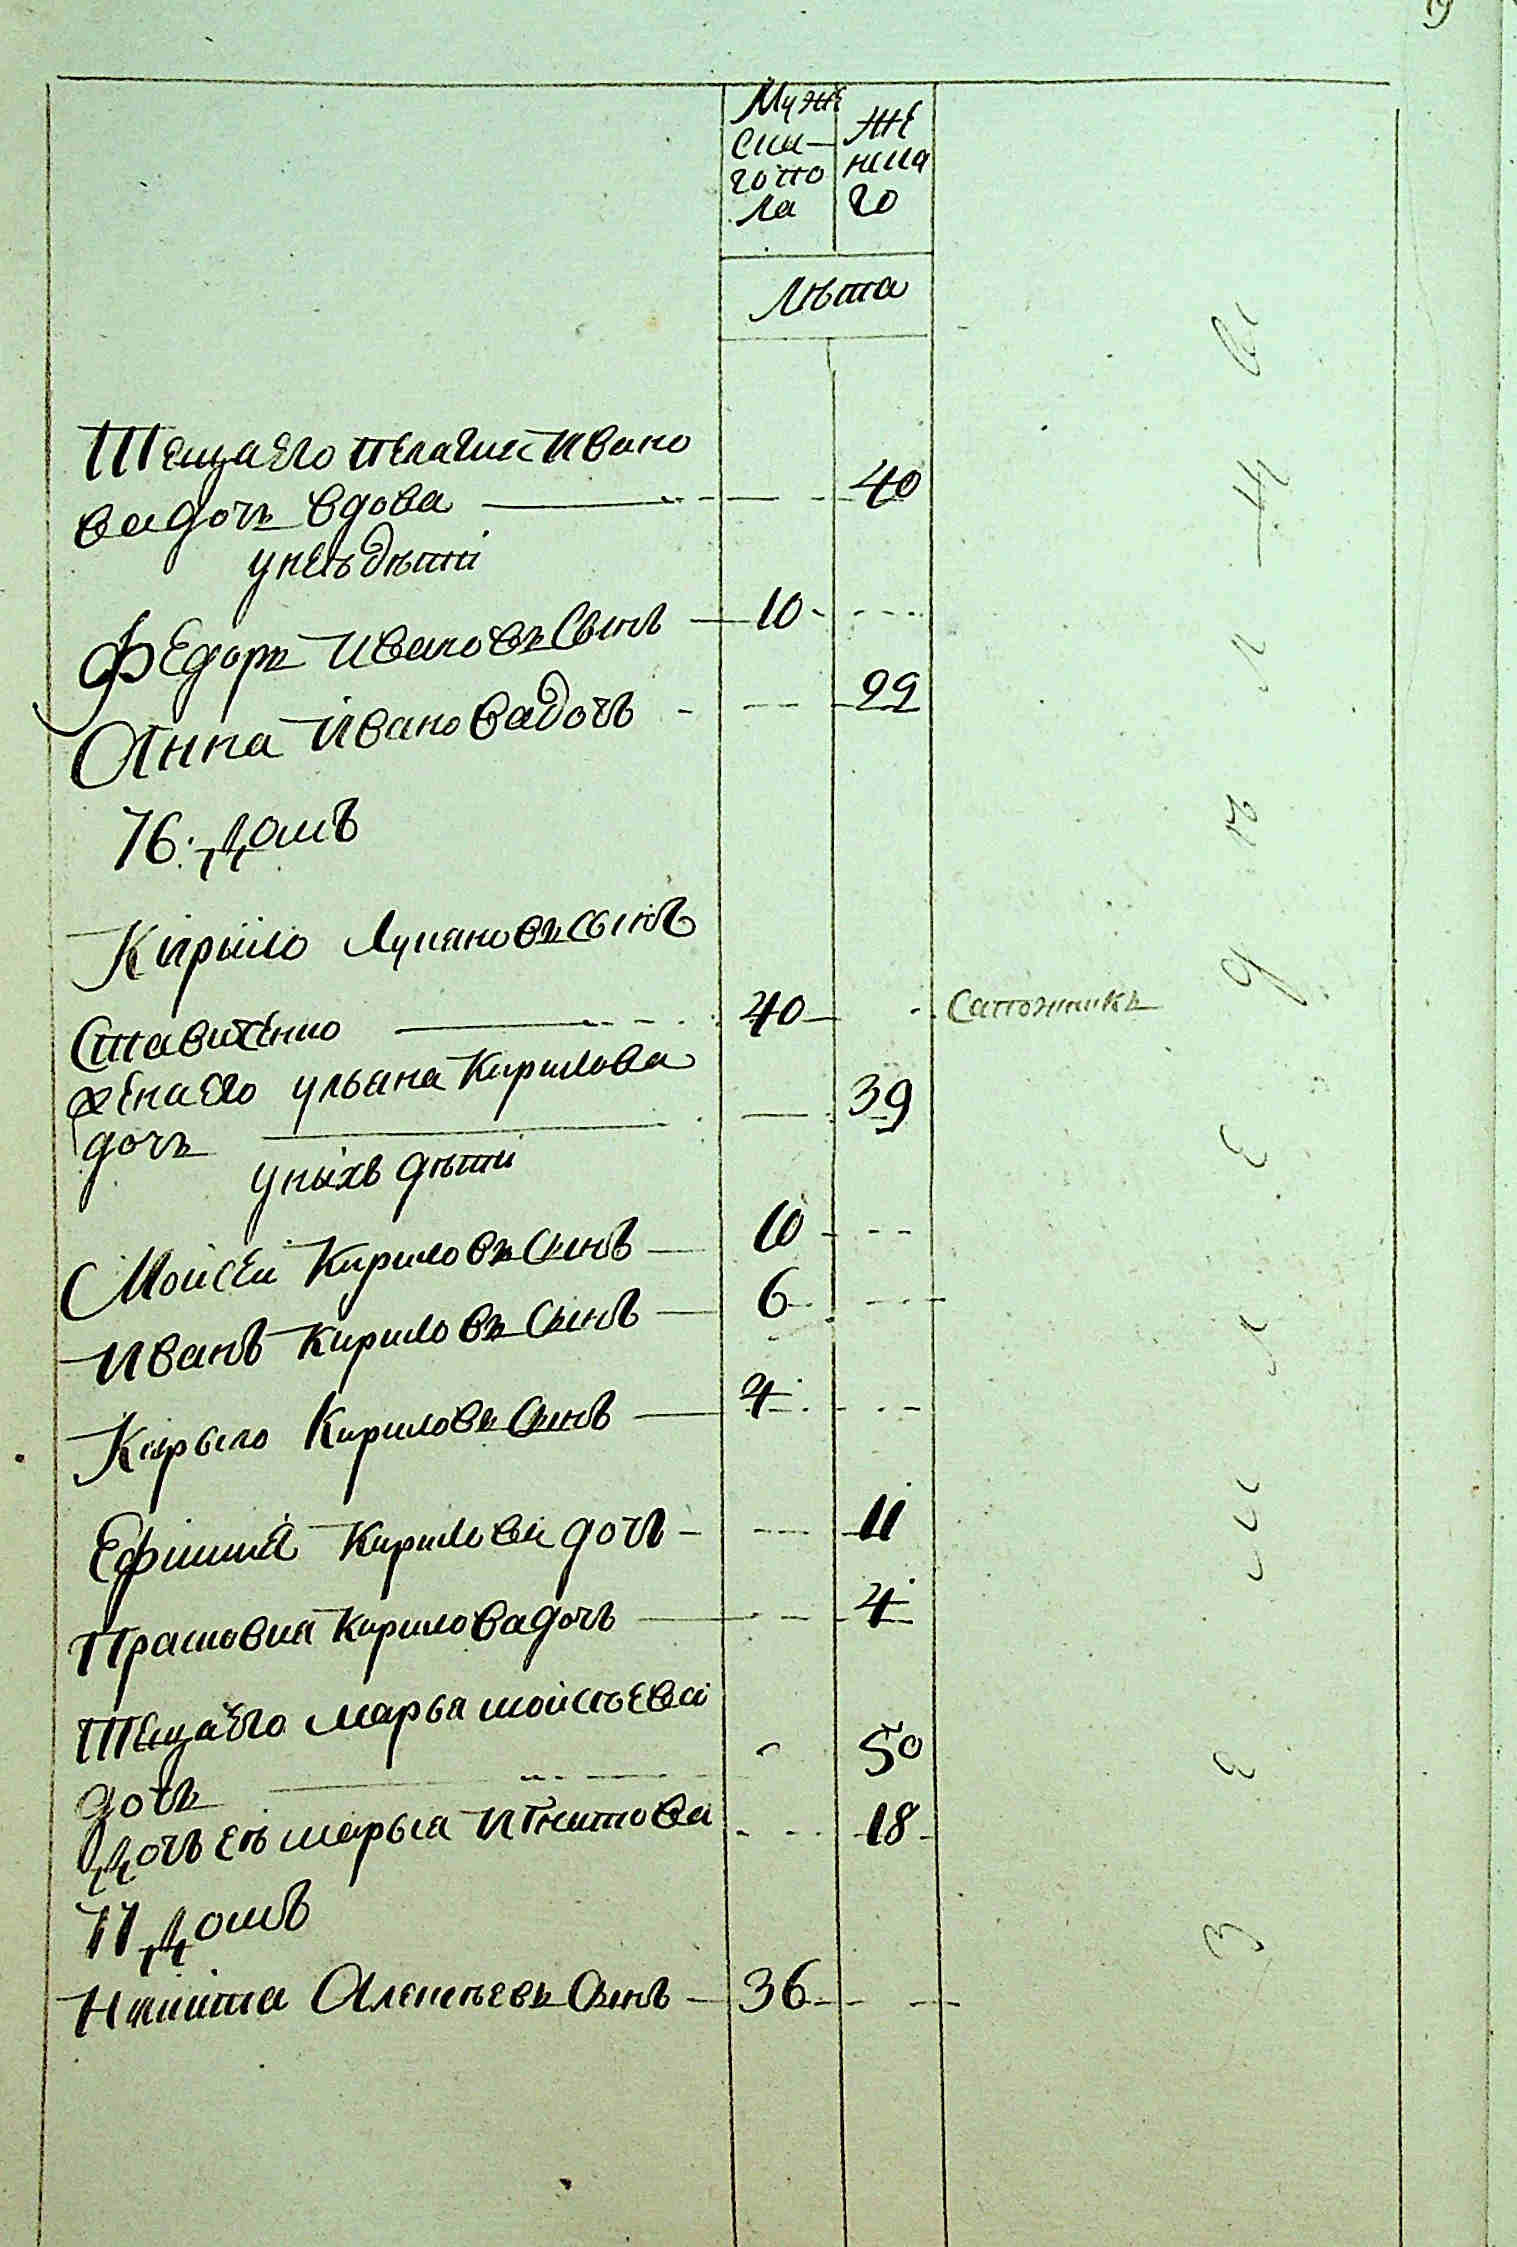 Муже
ска-
го по
ла
Же
нска
го
Лѣта
Теща его пелагия Ивано
ва дочь вдова 40
у неѣ дѣти
Федоръ Ивановъ Сынъ 10
Анна Ивановадочь 22
76. Домъ
Кирыло Лукяновъ сынъ
Ставитенко 40 Сапожникъ
жена его ульана Кирилова
дочь 39
у ныхъ дѣти
Моисеи Кириловъ Сынъ 10
Иванъ Кириловъ Сынъ 6
Кирыло Кириловъ Сынъ 4
Ефимия Кирилова дочь 11
Прасковия Кириловадочь 4
Теща его марья моисѣева
дочь 50
Дочь еѣ марья Игнатова 18
77 Домъ
Никита Алексѣевъ Сынъ 36